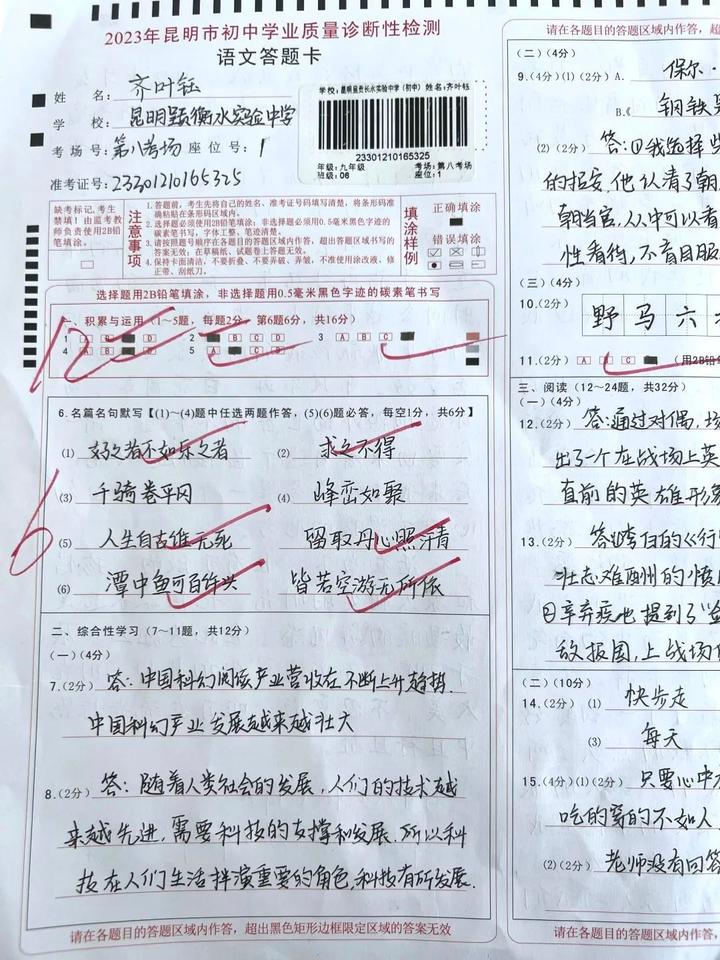 2023年昆明市初中学业质量诊断性检测
语文答题卡
姓 名：齐叶钰
学 校：昆明呈贡衡水实验中学
考场号：第八考场 座位号：1
准考证号：23301210165325
学校：昆明呈贡长水实验中学（初中） 姓名：齐叶钰
23301210165325
年级：九年级 考场：第八考场
班级：06 座位：1
缺考标记，考生禁填！由监考教师负责使用2B铅笔填涂。
注意事项
1.答题前，考生先将自己的姓名、准考证号码填写清楚，将条形码准确粘贴在条形码区域内。
2.选择题必须使用2B铅笔填涂；非选择题必须用0.5毫米黑色字迹的碳素笔书写，字体工整、笔迹清楚。
3.请按照题号顺序在各题目的答题区域内作答，超出答题区域书写的答案无效；在草稿纸、试题卷上答题无效。
4.保持卡面清洁，不要折叠、不要弄破、弄皱，不准使用涂改液、修正带、刮纸刀。
填涂样例
正确填涂
错误填涂
选择题用2B铅笔填涂，非选择题用0.5毫米黑色字迹的碳素笔书写
一、积累与运用（1～5题，每题2分，第6题6分，共16分）
12
1 A B D 2 B C D 3 A B C
4 A B D 5 A C D
6.名篇名句默写【(1)～(4)题中任选两题作答，(5)(6)题必答，每空1分，共6分】
6
(1) 好之者不如乐之者 (2) 求之不得
(3) 千骑卷平冈 (4) 峰峦如聚
(5) 人生自古谁无死 留取丹心照汗青
(6) 潭中鱼可百许头 皆若空游无所依
二、综合性学习（7～11题，共12分）
(一)（4分）
7.(2分) 答：中国科幻阅读产业营收在不断上升趋势.
中国科幻产业发展越来越壮大
8.(2分) 答：随着人类社会的发展，人们的技术越
来越先进，需要科技的支撑和发展.所以科
技在人们生活拌演重要的角色,科技有所发展.
请在各题目的答题区域内作答，超出黑色矩形边框限定区域的答案无效
请在各题目的答题区域内作答，超
(二)（4分）
9.(4分)(1)(2分) A. 保尔·
B.《 钢铁是
(2)(2分) 答：①我选择
的招安,他认清了朝
朝当官,从中可以看
性看待,不盲目服
(三)（4分）
10.(2分) 野 马 六
11.(2分) A B C （用2B铅
三、阅读（12～24题，共32分）
(一)（4分）
12.(2分) 答:通过对偶,
出了一个在战场上英
直前的英雄形象
13.(2分) 答:
壮志难酬的
②辛弃疾也提到了"
敌报国,上战场
(二)（10分）
14.(2分) (1) 快步走
(3) 每天
15.(4分)(1)(2分) 只要心中
吃的穿的不如人
(2)(2分) 老师没有回答
请在各题目的答题区域内作答，